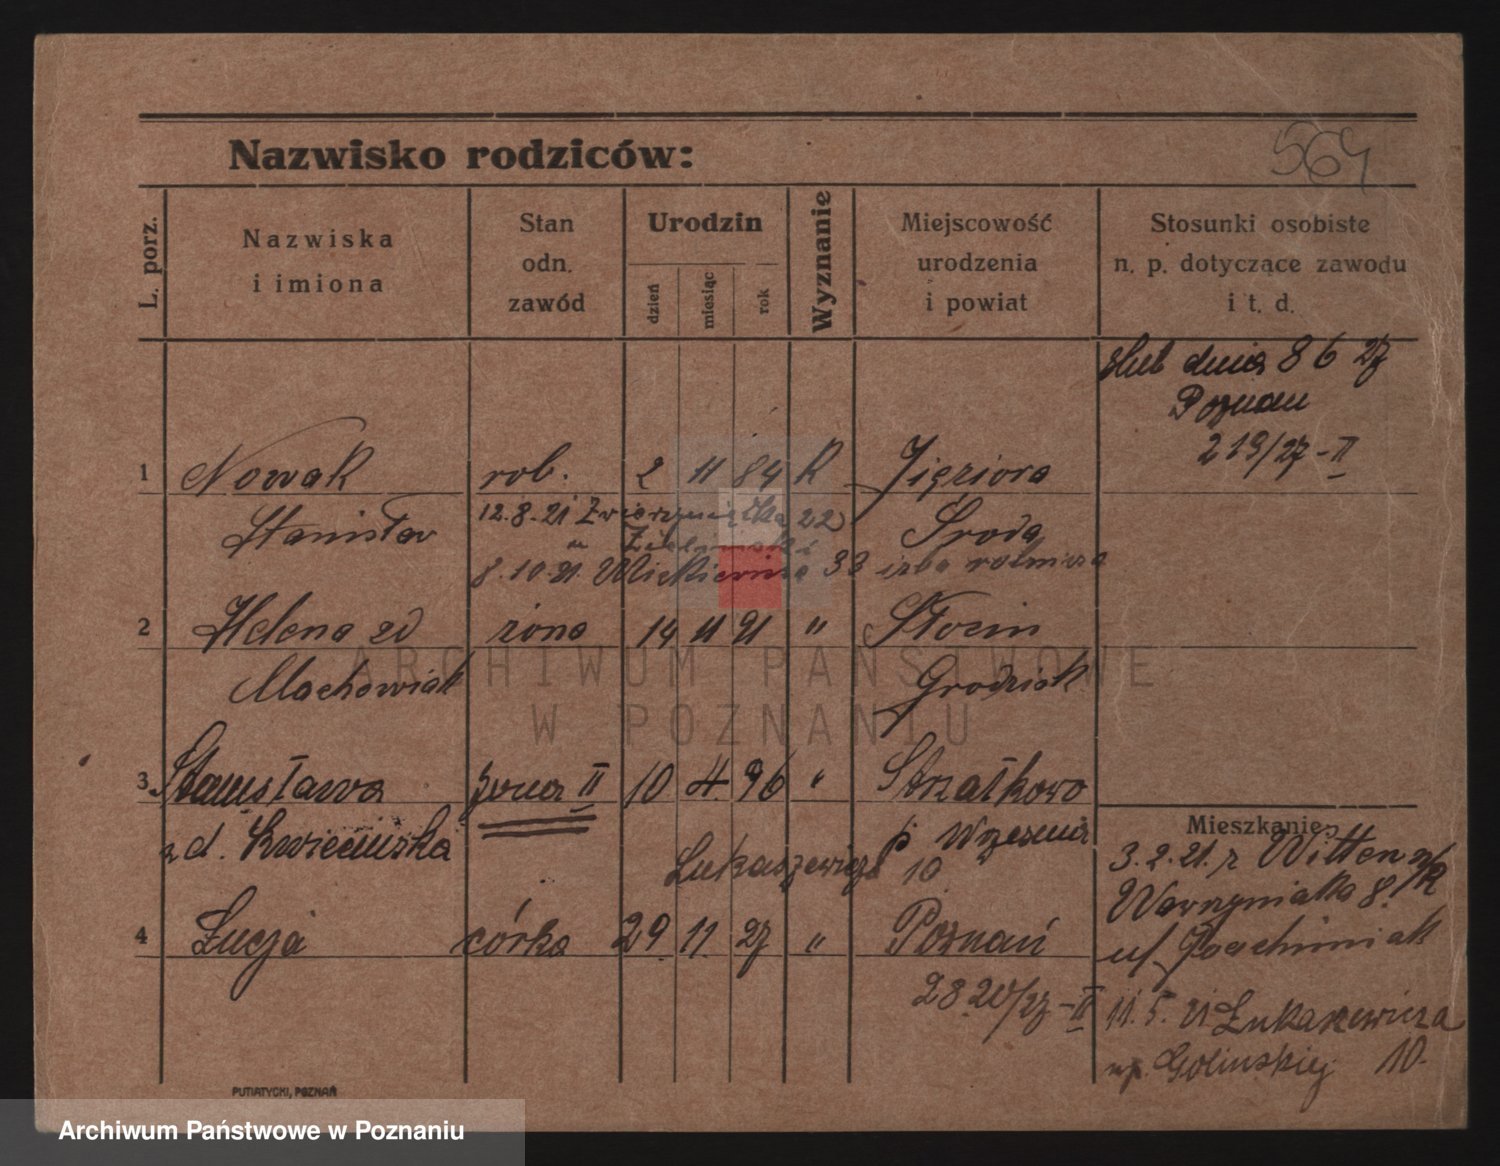 Nazwisko rodziców:
564
L. porz.
Nazwiska
i imiona
Stan
odn.
zawód
Urodzin
dzień
miesiąc
rok
Wyznanie
Miejscowość
urodzenia
i powiat
Stosunki osobiste
n. p. dotyczące zawodu
i t. d.
ślub dnia 8 6 27
Poznań
219/27-II
1 Nowak rob. 2 11 84 k Jeziora
Stanisław Środa
12.8.21 Zwierzyniecka 22
8.10.21 33 izba rolnicza
2 Helena zd żona 14 11 91 " Słocin
Machowiak Grodzisk
ARCHIWUM PAŃSTWOWE
W POZNANIU
3 Stanisława żona II 10 4. 96 " Strzałkowo
zd. Kwiecińska p Września
Łukaszewicza 10
4 Łucja córka 29. 11. 27 " Poznań
2820/27-II
Mieszkanie:
3.2.21. z Witten
8.
u/ Joachimiak
11.5.21 Łukaszewicza
np. Golinskiej 10.
PUTIATYCKI, POZNAŃ
Archiwum Państwowe w Poznaniu